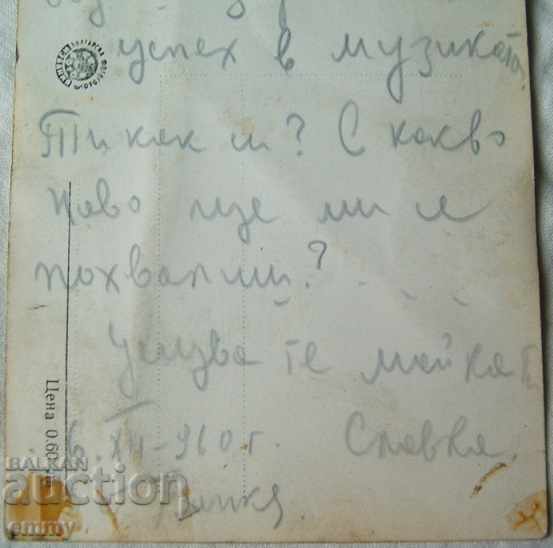 успех в музиката.
Ти как си? С какво
ново ще ми се
похвалиш?
Целува те майка ти
6.XII-960 г. Славка
Цена 0.60
BALKAN
auction
emmy